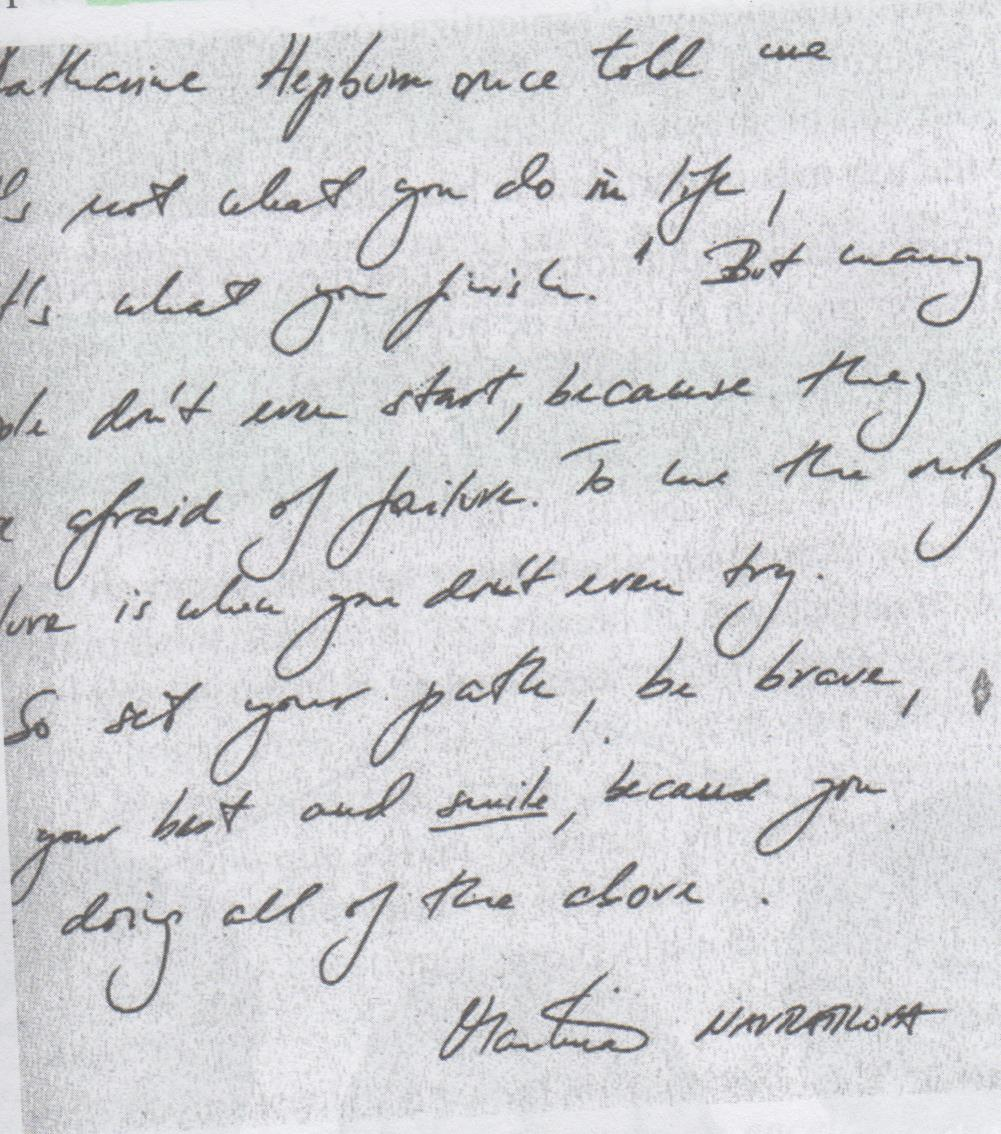 Katharine Hepburn once told me
it's not what you do in life,
it's what you finish." But many
ple don't even start, because they
e afraid of failure. To me the only
lure is when you don't even try.
So set your path, be brave,
your best and smile, because you
doing all of the above.
Martina NAVRATILOVA